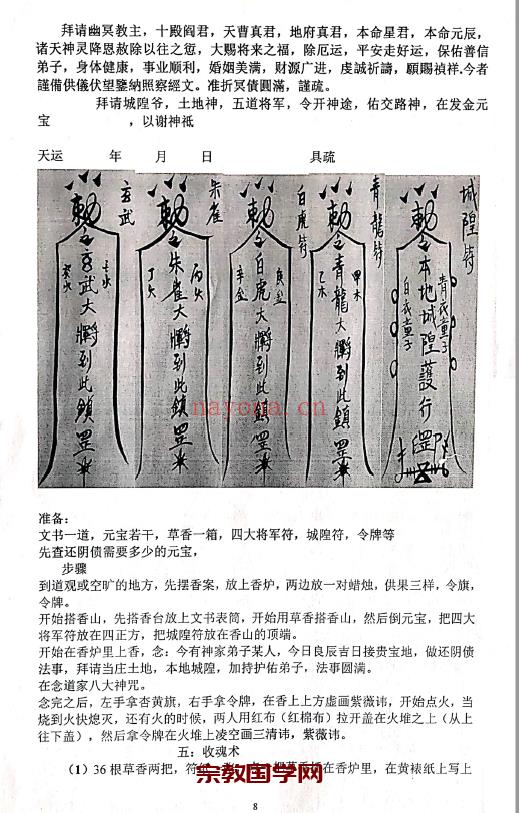 拜请幽冥教主，十殿阎君，天曹真君，地府真君，本命星君，本命元辰，
诸天神灵降恩赦除以往之愆，大赐将来之福，除厄运，平安走好运，保佑善信
弟子，身体健康，事业顺利，婚姻美满，财源广进，虔誠祈禱，願賜禎祥.今者
謹備供儀伏望鑒纳照察經文。准折冥債圓滿，謹疏。
拜请城隍爷，土地神，五道将军，令开神途，佑交路神，在发金元
宝 ，以谢神祗
天运 年 月 日 具疏
玄武
敕令玄武大將到此鎮罡
壬水
癸水
朱雀
敕令朱雀大將到此鎮罡
丙火
丁火
白虎符
敕令白虎大將到此鎮罡
庚金
辛金
青龍符
敕令青龍大將到此鎮罡
甲木
乙木
城隍符
敕令本地城隍護行罡
青衣童子
白衣童子
nayona.cn
准备：
文书一道，元宝若干，草香一箱，四大将军符，城隍符，令牌等
先查还阴债需要多少的元宝，
步骤
到道观或空旷的地方，先摆香案，放上香炉，两边放一对蜡烛，供果三样，令旗，
令牌。
开始搭香山，先搭香台放上文书表筒，开始用草香搭香山，然后倒元宝，把四大
将军符放在四正方，把城隍符放在香山的顶端。
开始在香炉里上香，念：今有神家弟子某人，今日良辰吉日接贵宝地，做还阴债
法事，拜请当庄土地，本地城隍，加持护佑弟子，法事圆满。
在念道家八大神咒。
念完之后，左手拿杏黄旗，右手拿令牌，在香上上方虚画紫薇讳，开始点火，当
烧到火快熄灭，还有火的时候，两人用红布（红棉布）拉开盖在火堆之上（从上
往下盖），然后拿令牌在火堆上凌空画三清讳，紫薇讳。
五：收魂术
（1）36 根草香两把，符纸一 在香炉里，在黄裱纸上写上
宗教国学网
8